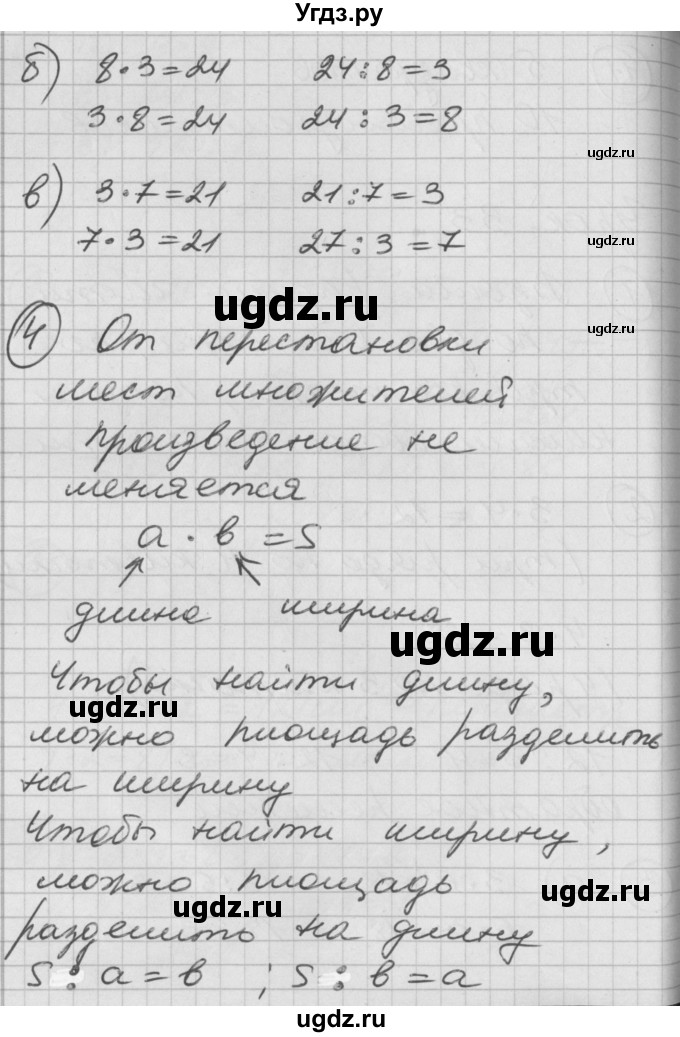 Угдз.ру
б) 8·3=24 24:8=3
3·8=24 24:3=8
ugdz.ru
в) 3·7=21 21:7=3
7·3=21 27:3=7
ugdz.ru
ugdz.ru
ugdz.ru
4 От перестановки
мест множителей
произведение не
меняется
a · b = S
длина ширина
ugdz.ru
Чтобы найти длину,
ugdz.ru
можно площадь разделить
на ширину
Чтобы найти ширину,
можно площадь
ugdz.ru
ugdz.ru
разделить на длину
S : a = b ; S : b = a
ugdz.ru